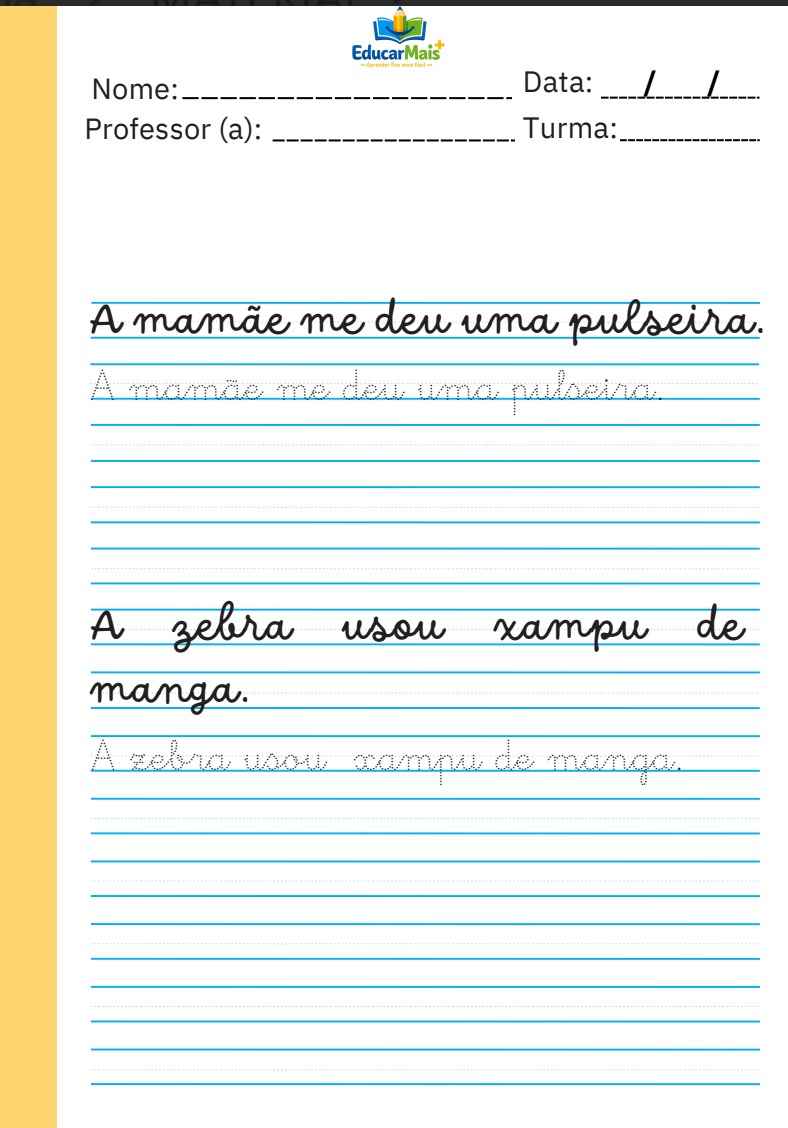 EducarMais+
Nome: Data: / /
Professor (a): Turma:
A mamãe me deu uma pulseira.
A mamãe me deu uma pulseira.
A zebra usou xampu de
manga.
A zebra usou xampu de manga.